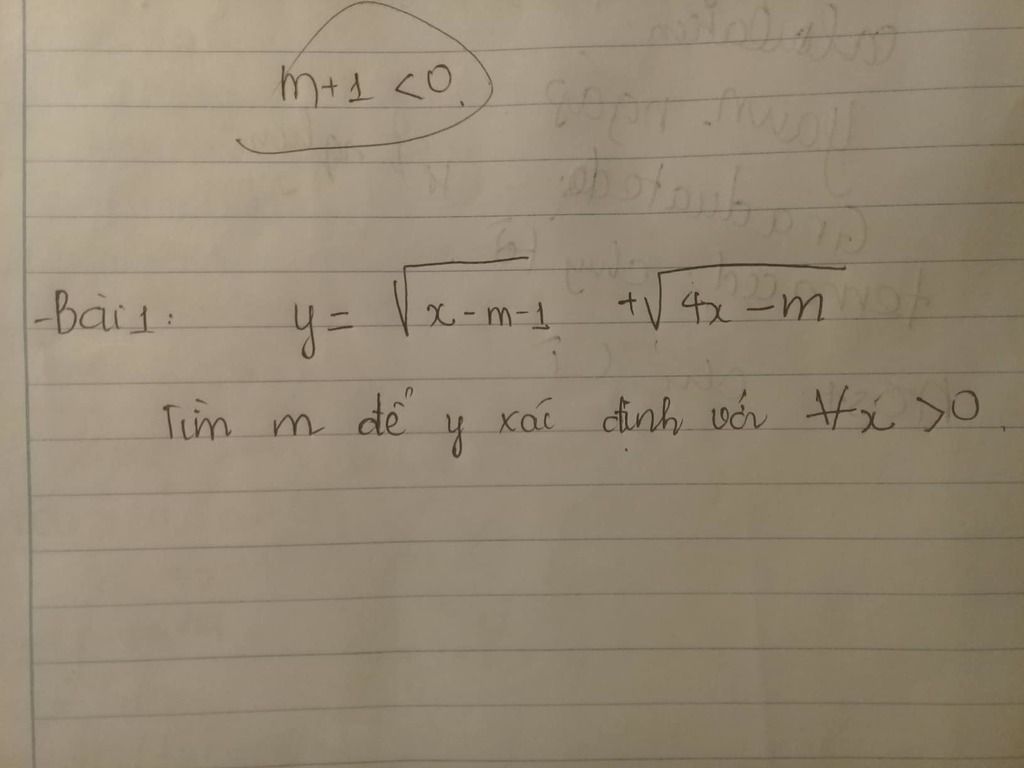 m+1 <0.
-Bài 1: y = √x-m-1 + √4x-m
Tìm m để y xác định với ∀x >0.